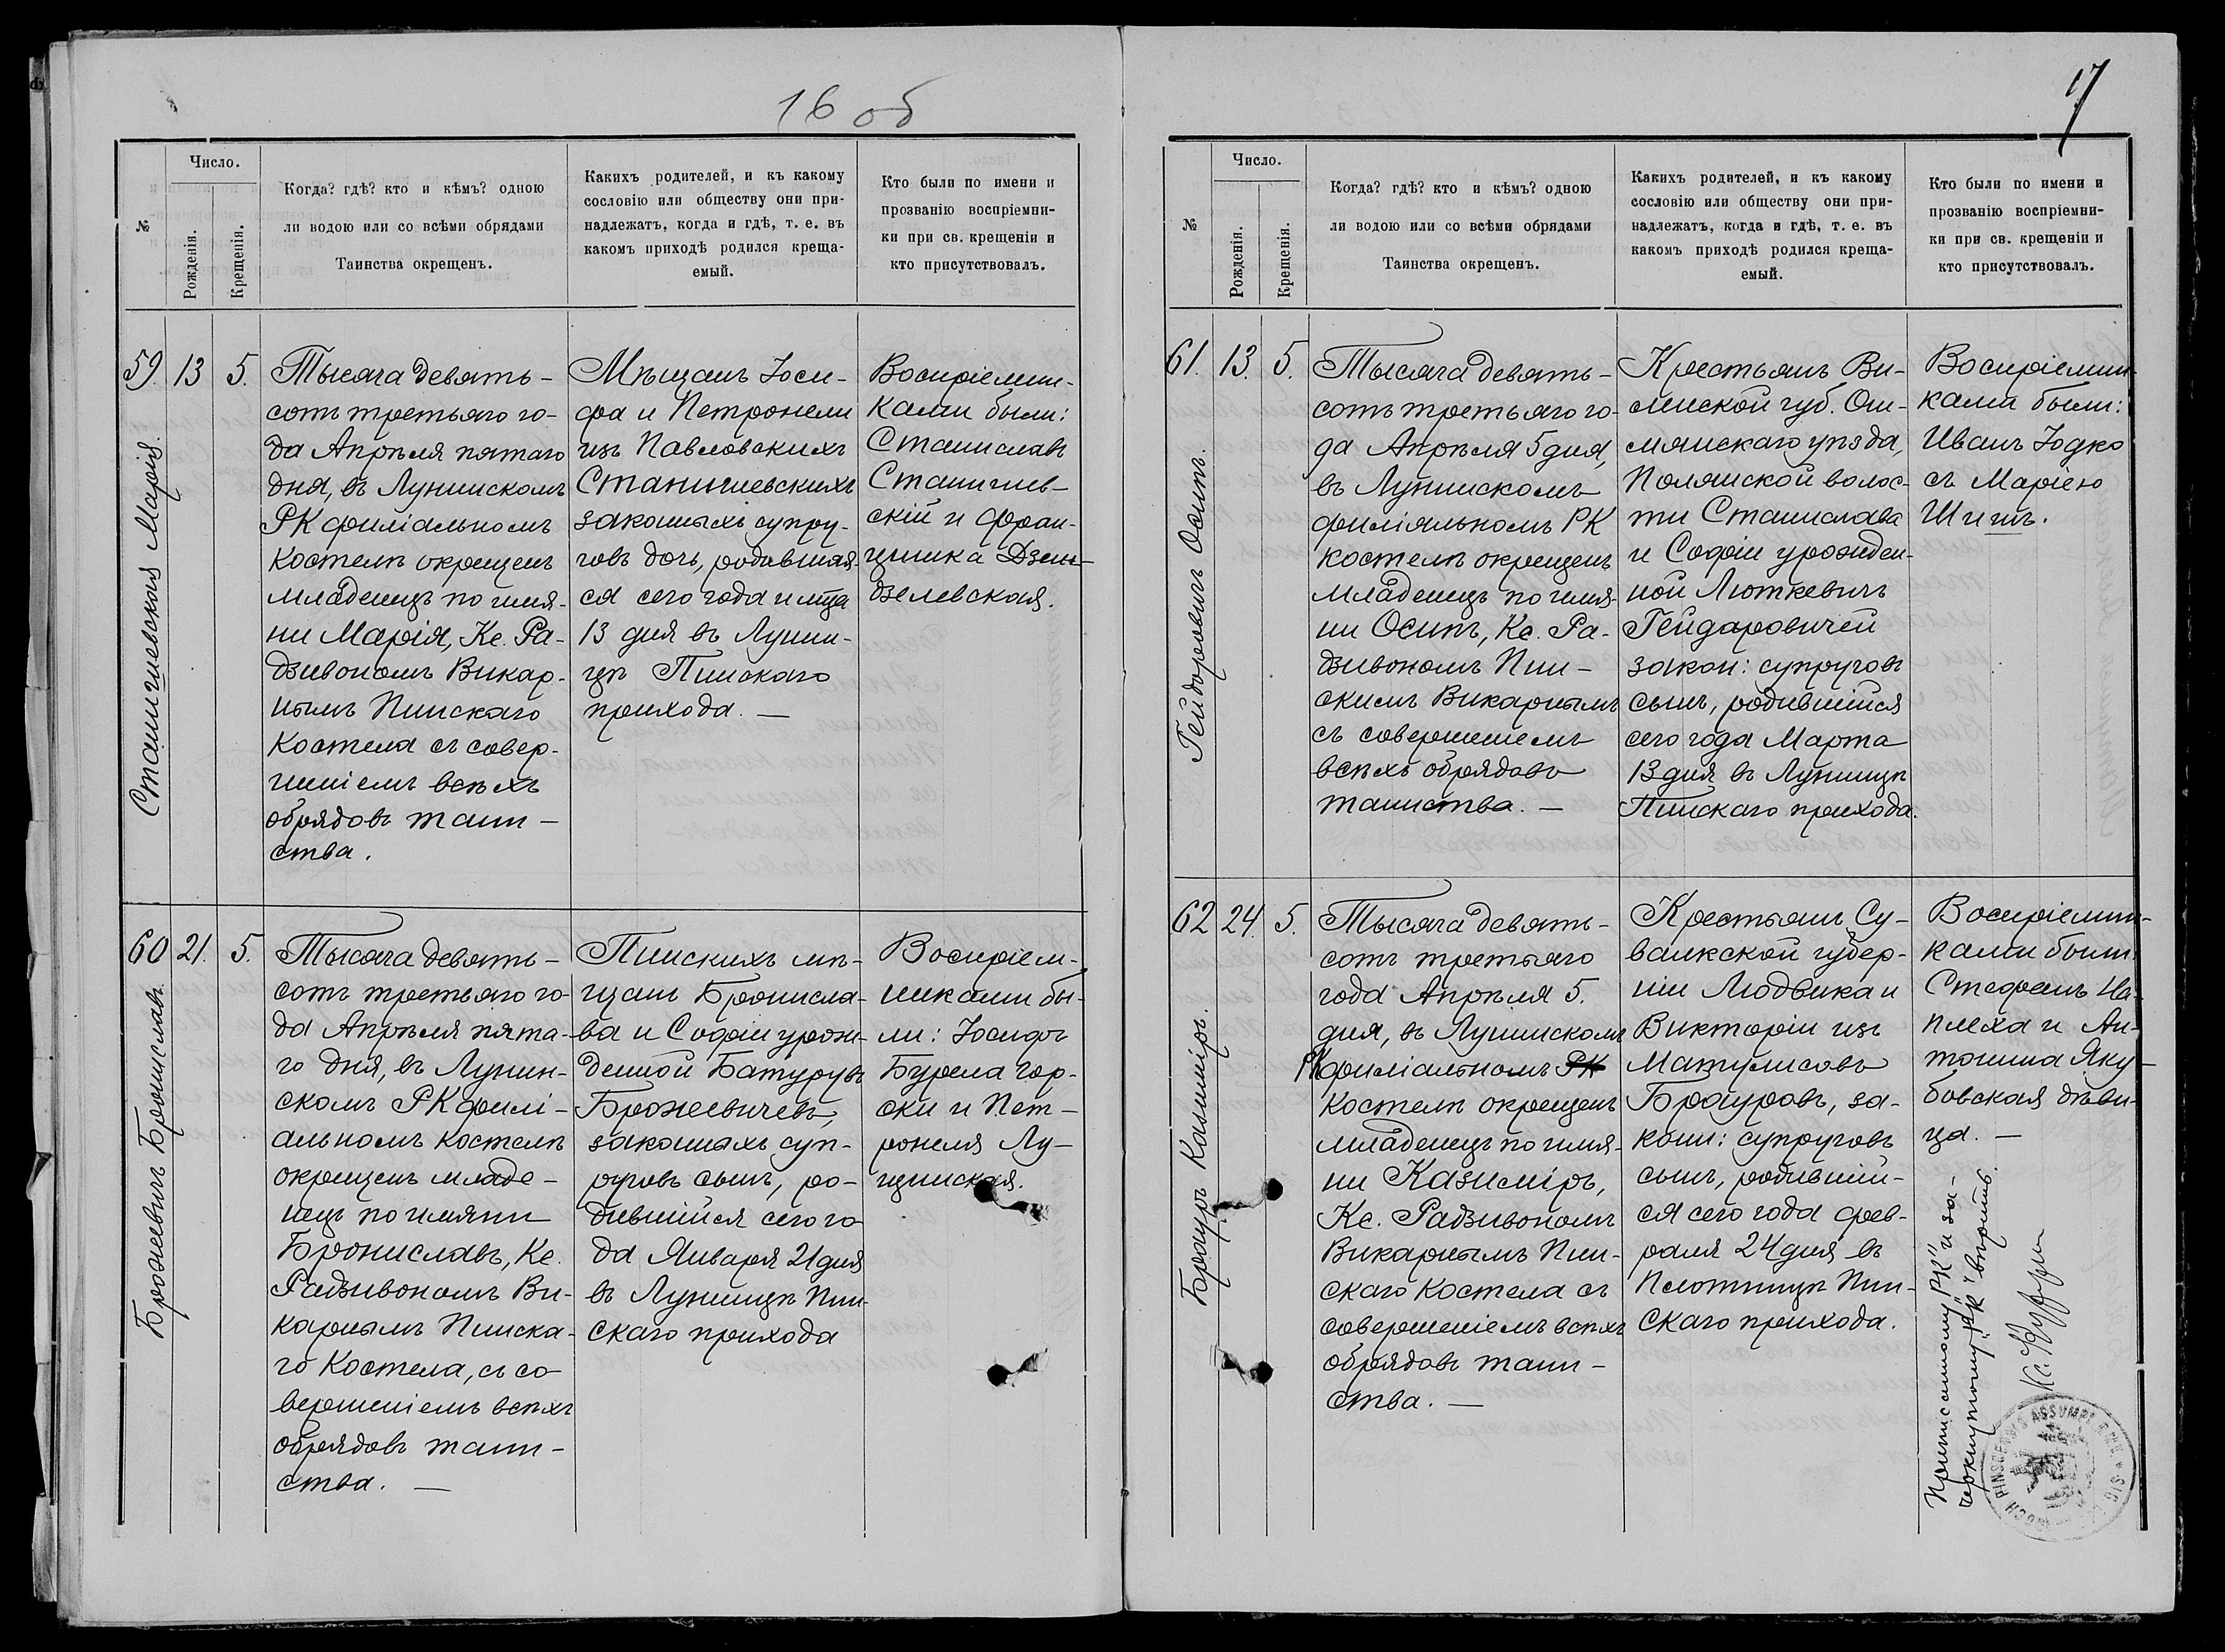 16 об
№
Число.
Рожденія.
Крещенія.
Когда? гдѣ? кто и кѣмъ? одною
ли водою или со всѣми обрядами
Таинства окрещенъ.
Какихъ родителей, и къ какому
сословію или обществу они при-
надлежатъ, когда и гдѣ, т. е. въ
какомъ приходѣ родился креща-
емый.
Кто были по имени и
прозванію воспріемни-
ки при св. крещеніи и
кто присутствовалъ.
59. 13 5.
Станишевская Марія.
Тысяча девять-
сотъ третьяго го-
да Апрѣля пятаго
дня, въ Лунинскомъ
РК филіальномъ
костелѣ окрещенъ
младенецъ по имя-
ни Марія, Кс. Ра-
дзивономъ Викар-
нымъ Пинскаго
Костела съ совер-
шеніемъ всѣхъ
обрядовъ таин-
ства.
Мѣщанъ Іоси-
фа и Петронели
изъ Павловскихъ
Станишевскихъ
законныхъ супру-
говъ дочь, родившая-
ся сего года и мца
13 дня въ Лунин-
цѣ Пинскаго
прихода. —
Воспріемни-
ками были:
Станиславъ
Станишев-
скій и Фран-
цишка Дзен-
дзелевская.
60 21. 5.
Брожевичъ Брониславъ.
Тысяча девять-
сотъ третьяго го-
да Апрѣля пята-
го дня, въ Лунин-
скомъ РК филі-
альномъ костелѣ
окрещенъ младе-
нецъ по имяни
Брониславъ, Кс.
Радзивономъ Ви-
карнымъ Пинска-
го Костела, съ со
вершеніемъ всѣхъ
обрядовъ таин-
ства. —
Пинскихъ мѣ-
щанъ Бронисла-
ва и Софіи урож-
денной Батуруъ
Брожевичевъ,
законныхъ суп-
руговъ сынъ, ро-
дившійся сего го
да Января 21 дня
въ Лунинцѣ Пин-
скаго прихода
Воспріем-
никами бы-
ли: Іосифъ
Бурела Гор-
ски и Пет-
ронеля Лу-
щинская.
17
№
Число.
Рожденія.
Крещенія.
Когда? гдѣ? кто и кѣмъ? одною
ли водою или со всѣми обрядами
Таинства окрещенъ.
Какихъ родителей, и къ какому
сословію или обществу они при-
надлежатъ, когда и гдѣ, т. е. въ
какомъ приходѣ родился креща-
емый.
Кто были по имени и
прозванію воспріемни-
ки при св. крещеніи и
кто присутствовалъ.
61. 13. 5.
Гейдаровичъ Осипъ.
Тысяча девять-
сотъ третьяго го-
да Апрѣля 5 дня,
въ Лунинскомъ
филіяльномъ РК
костелѣ окрещенъ
младенецъ по имя-
ни Осипъ, Кс. Ра-
дзивономъ Пин-
скимъ Викарнымъ
съ совершеніемъ
всѣхъ обрядовъ
таинства. —
Крестьянъ Ви-
ленской губ. Ош-
мянскаго уѣзда,
Полянской волос-
ти Станислава
и Софіи урожден-
ной Люткевичъ
Гейдаровичей
закон: супруговъ
сынъ, родившійся
сего года Марта
13 дня въ Лунинцѣ
Пинскаго прихода.
Воспріемни-
ками были:
Иванъ Юдко
съ Маріею
Шишъ.
62 24. 5.
Брауръ Казиміръ.
Тысяча девять-
сотъ третьяго
года Апрѣля 5.
дня, въ Лунинскомъ
РК филіальномъ РК
костелѣ окрещенъ
младенецъ по имя-
ни Казиміръ,
Кс. Радзивономъ
Викарнымъ Пин-
скаго Костела съ
совершеніемъ всѣхъ
обрядовъ таин-
ства. —
Крестьянъ Су-
валкской губер-
ніи Людвика и
Викторіи изъ
Матулисовъ
Брауровъ, за-
конн: супруговъ
сынъ, родивший-
ся сего года фев-
раля 24 дня въ
Плотницѣ Пин-
скаго прихода.
Воспріемни-
ками были:
Стефанъ На-
плеха и Ан-
тонина Яку-
бовская дѣви-
ца. —
Приписанному "РК" и за-
черкнутому "РК" вѣрить.
Кс.
PINSCENSIS ASSUMPT SIG